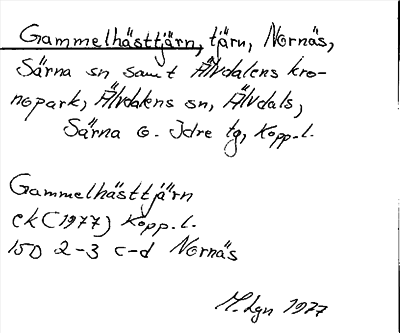 Gammelhästtjärn, tjärn, Nornäs,
Särna sn samt Älvdalens kro-
nopark, Älvdalens sn, Älvdals,
Särna o. Idre tg, Kopp. l.
Gammelhästtjärn
ek (1977) Kopp. l.
15D 2-3 c-d Nornäs
M. Lgn 1977